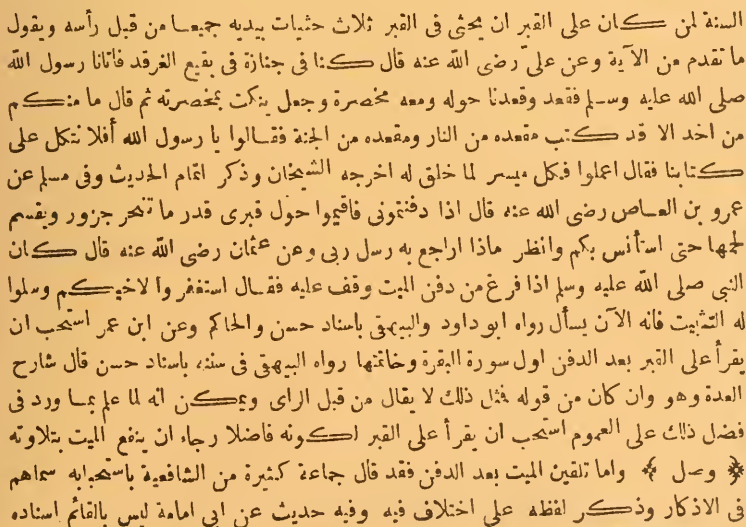 السنة لمن كان على القبر ان يحثى فى القبر ثلاث حثيات بيديه جميعا من قبل رأسه ويقول
ما تقدم من الآية وعن علىّ رضى الله عنه قال كنا فى جنازة فى بقيع الغرقد فاتانا رسول الله
صلى الله عليه وسلم فقعد وقعدنا حوله ومعه مخصرة وجعل ينكت بمخصرته ثم قال ما منكم
من احد الا قد كتب مقعده من النار ومقعده من الجنة فقالوا يا رسول الله أفلا نتكل على
كتابنا فقال اعملوا فكل ميسر لما خلق له اخرجه الشيخان وذكر اتمام الحديث وفى مسلم عن
عمرو بن العاص رضى الله عنه قال اذا دفنتمونى فاقيموا حول قبرى قدر ما تنحر جزور ويقسم
لحمها حتى استأنس بكم وانظر ماذا اراجع به رسل ربى وعن عثمان رضى الله عنه قال كان
النبى صلى الله عليه وسلم اذا فرغ من دفن الميت وقف عليه فقال استغفروا لاخيكم وسلوا
له التثبيت فانه الآن يسأل رواه ابو داود والبيهقى باسناد حسن والحاكم وعن ابن عمر استحب ان
يقرأ على القبر بعد الدفن اول سورة البقرة وخاتمتها رواه البيهقى فى سننه باسناد حسن قال شارح
العدة وهو وان كان من قوله فمثل ذلك لا يقال من قبل الراى ويمكن انه لما علم بما ورد فى
فضل ذلك على العموم استحب ان يقرأ على القبر لكونه فاضلا رجاء ان ينفع الميت بتلاوته
﴿ وصل ﴾ واما تلقين الميت بعد الدفن فقد قال جماعة كثيرة من الشافعية باستحبابه سماهم
فى الاذكار وذكر لفظه على اختلاف فيه وفيه حديث عن ابى امامة ليس بالقائم اسناده